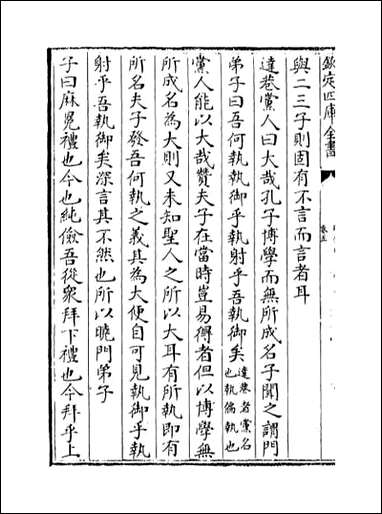 欽定四庫全書
卷五
與二三子則固有不言而言者耳
達巷黨人曰大哉孔子博學而無所成名子聞之謂門
弟子曰吾何執執御乎執射乎吾執御矣達巷者黨名也執備執也
黨人能以大哉贊夫子在當時豈易得者但以博學無
所成名為大則又未知聖人之所以大耳有所執即有
所名夫子發吾何執之義其為大便自可見執御乎執
射乎吾執御矣深言其不然也所以曉門弟子
子曰麻冕禮也今也純儉吾從衆拜下禮也今拜乎上